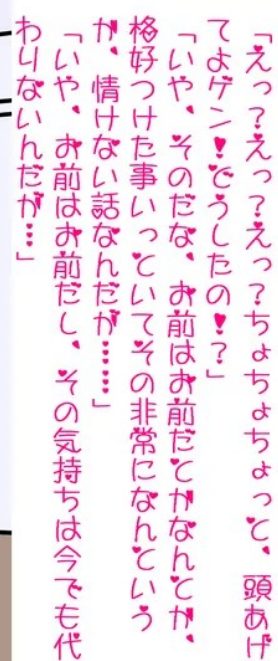 「えっ？えっ？えっ？ちょちょちょっと、頭あげ
てよゲン！どうしたの！？」
「いや、そのだな、お前はお前だとかなんとか、
格好つけた事いっといてその非常になんという
か、情けない話なんだが……」
「いや、お前はお前だし、その気持ちは今でも代
わりないんだが…」